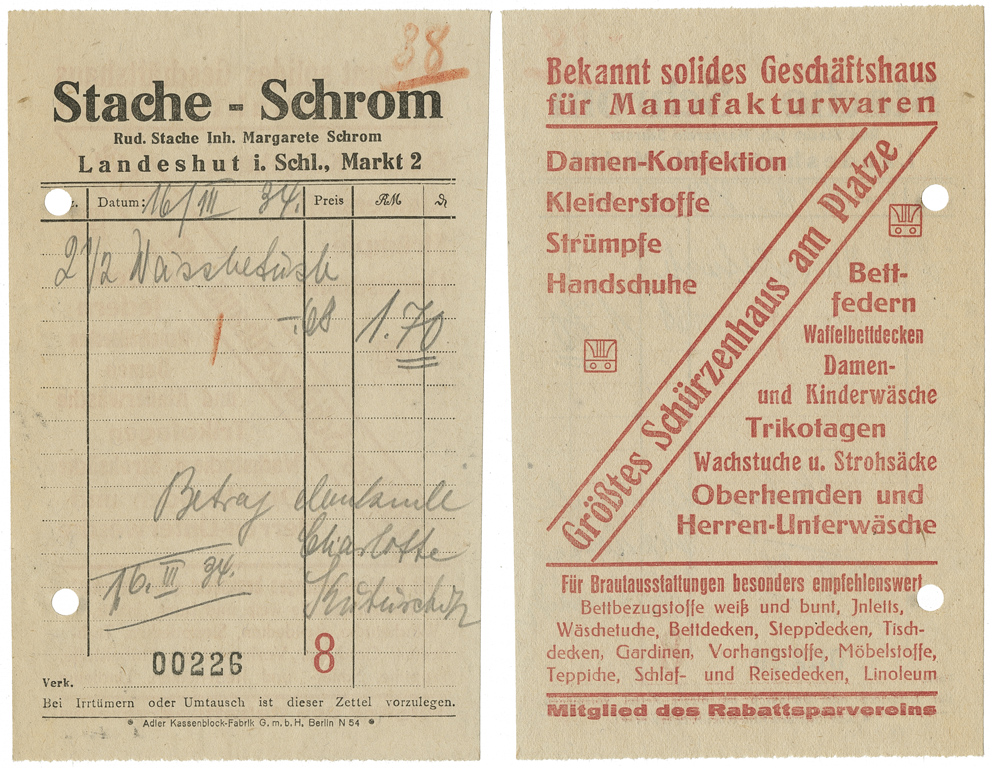 38
Stache - Schrom
Rud. Stache Inh. Margarete Schrom
Landeshut i. Schl., Markt 2
Datum: 16/III 34. Preis RM
2 1/2 Wäschetuch
-.68 1.70
Betrag dankend
Charlotte
16. III 34.
00226 8
Verk.
Bei Irrtümern oder Umtausch ist dieser Zettel vorzulegen.
* Adler Kassenblock-Fabrik G. m. b. H. Berlin N 54 *
Bekannt solides Geschäftshaus
für Manufakturwaren
Damen-Konfektion
Kleiderstoffe
Strümpfe
Handschuhe
Größtes Schürzenhaus am Platze
Bett-
federn
Waffelbettdecken
Damen-
und Kinderwäsche
Trikotagen
Wachstuche u. Strohsäcke
Oberhemden und
Herren-Unterwäsche
Für Brautausstattungen besonders empfehlenswert
Bettbezugstoffe weiß und bunt, Jnletts,
Wäschetuche, Bettdecken, Steppdecken, Tisch-
decken, Gardinen, Vorhangstoffe, Möbelstoffe,
Teppiche, Schlaf- und Reisedecken, Linoleum
Mitglied des Rabattsparvereins